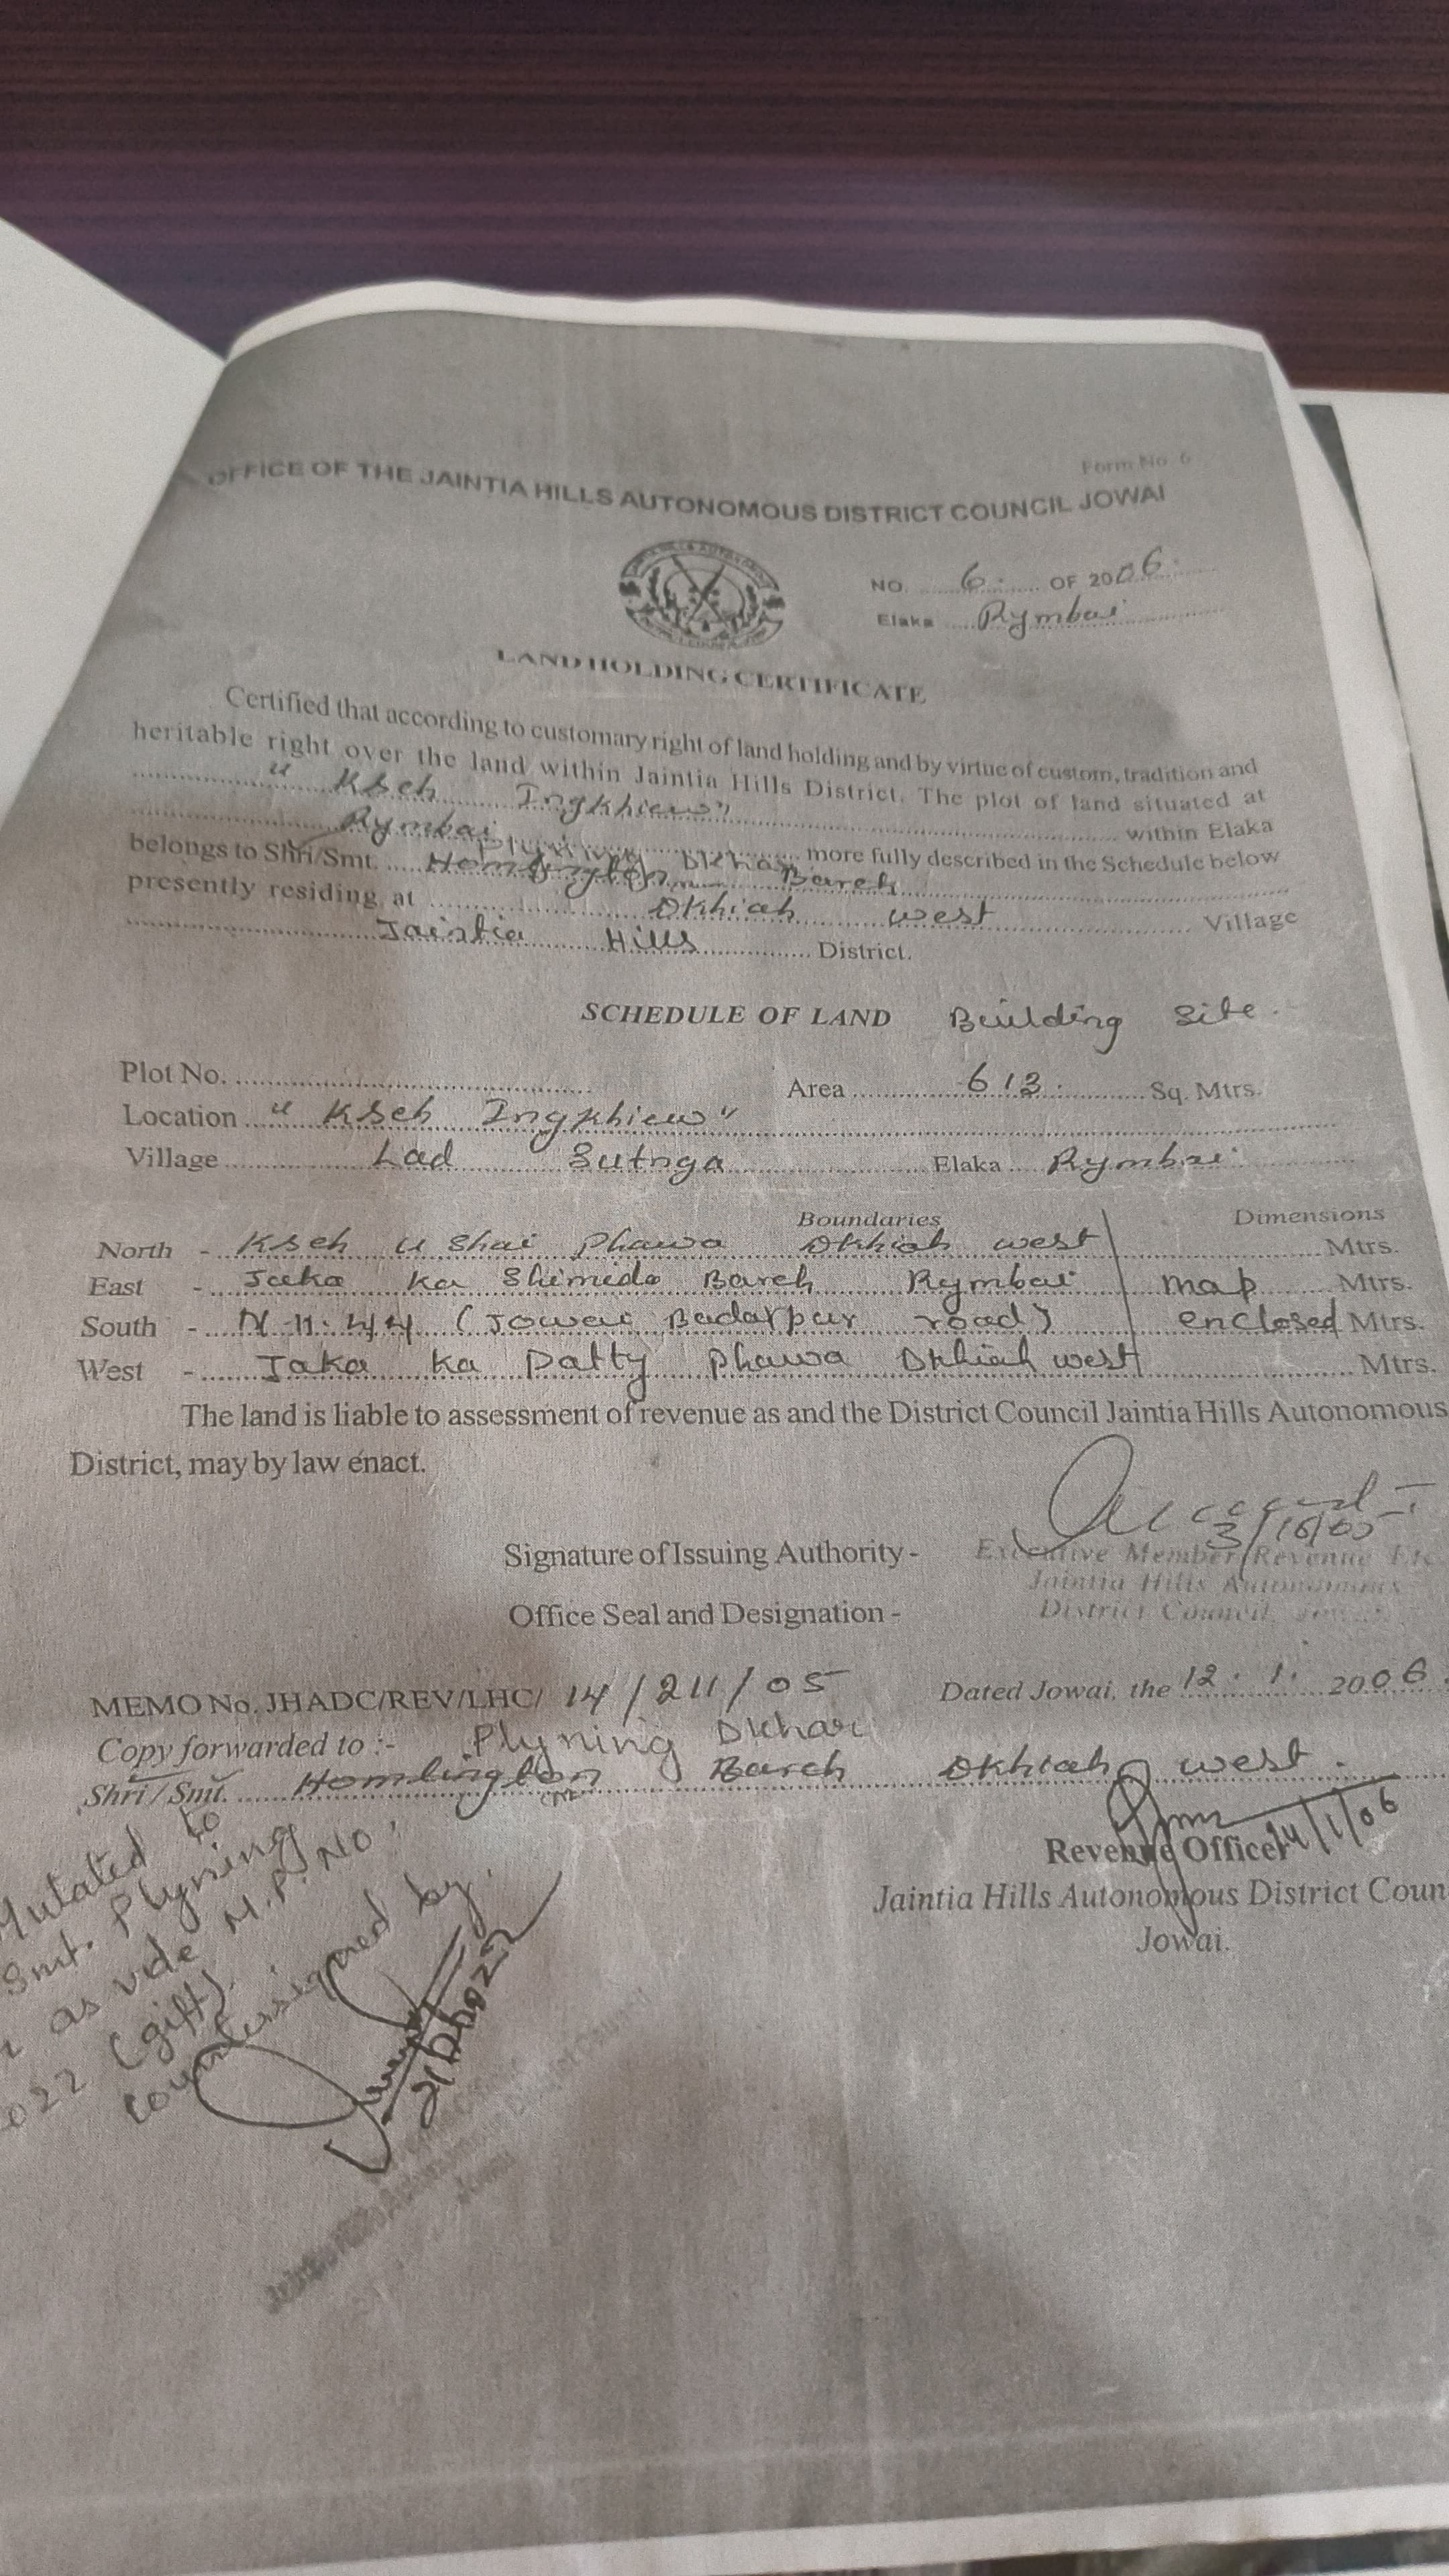 Form No 6
OFFICE OF THE JAINTIA HILLS AUTONOMOUS DISTRICT COUNCIL JOWAI
NO. 6. OF 2006.
Elaka Rymbai
LAND HOLDING CERTIFICATE
Certified that according to customary right of land holding and by virtue of custom, tradition and
heritable right over the land within Jaintia Hills District. The plot of land situated at
"Kseh Ingkhiew"
Rymbai within Elaka
more fully described in the Schedule below
Dkhar
belongs to Shri/Smt. Homlington Bareh
presently residing at Dkhiah west Village
Jaintia Hills District.
SCHEDULE OF LAND Building Site.
Plot No. Area 613. Sq. Mtrs.
Location "Kseh Ingkhiew"
Village Lad Sutnga Elaka Rymbai
Boundaries Dimensions
North - Kseh u Shai Phawa Dkhiah west Mtrs.
East - Jaka ka Shimida Bareh Rymbai map Mtrs.
South - N.H.44 (Jowai Badarpur road) enclosed Mtrs.
West - Jaka ka Datty Phawa Dkhiah west Mtrs.
The land is liable to assessment of revenue as and the District Council Jaintia Hills Autonomous
District, may by law enact.
Signature of Issuing Authority -
Executive Member Revenue Etc
Jaintia Hills Autonomous
Office Seal and Designation - District Council,
MEMO No. JHADC/REV/LHC/ 14/211/05 Dated Jowai, the 12.1.2006.
Copy forwarded to :- Plyning Dkhar
Shri/Smt. Homlington Bareh Dkhiah west.
14/1/06
Revenue Officer
Jaintia Hills Autonomous District Coun
Jowai.
Mutated to
Smt. Plyning
as vide M.P. No.
022 (gift).
Countersigned by.
Jowai